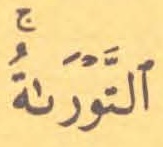 ٱلتَّوْرَىٰةُۚ